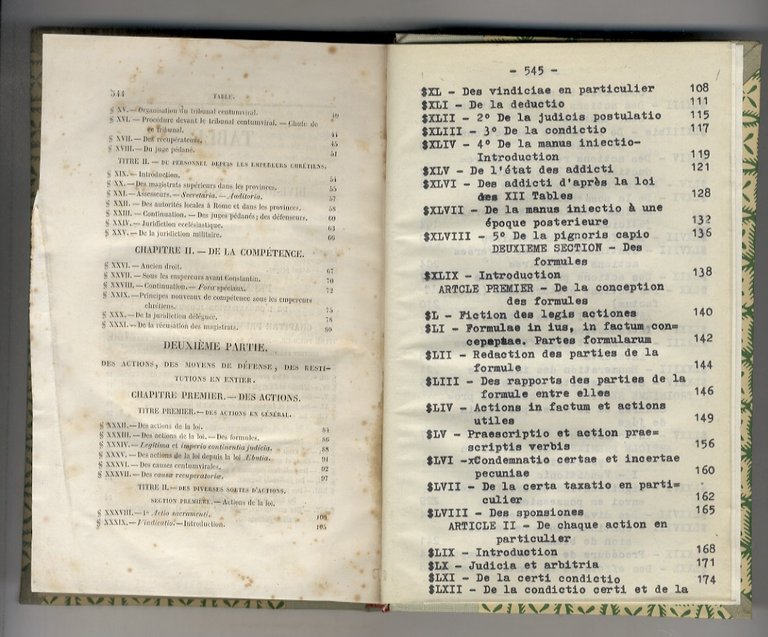 544
TABLE.
§ XV. — Organisation du tribunal centumviral.
§ XVI. — Procédure devant le tribunal centumviral. — Chute de
ce tribunal. 44
§ XVII. — Des récupérateurs. 45
§ XVIII. — Du juge pédané. 51
TITRE II. — DU PERSONNEL DEPUIS LES EMPEREURS CHRÉTIENS.
§ XIX. — Introduction. 54
§ XX. — Des magistrats supérieurs dans les provinces. 55
§ XXI. — Assesseurs. — Secretaria. — Auditoria. 57
§ XXII. — Des autorités locales à Rome et dans les provinces. 58
§ XXIII. — Continuation. — Des juges pédanés; des défenseurs. 60
§ XXIV. — Juridiction ecclésiastique. 63
§ XXV. — De la juridiction militaire. 66
CHAPITRE II. — DE LA COMPÉTENCE.
§ XXVI. — Ancien droit. 67
§ XXVII. — Sous les empereurs avant Constantin. 70
§ XXVIII. — Continuation. — Fora spéciaux. 72
§ XXIX. — Principes nouveaux de compétence sous les empereurs
chrétiens. 75
§ XXX. — De la juridiction déléguée. 78
§ XXXI. — De la récusation des magistrats. 80
DEUXIÈME PARTIE.
DES ACTIONS, DES MOYENS DE DÉFENSE, DES RESTI-
TUTIONS EN ENTIER.
CHAPITRE PREMIER. — DES ACTIONS.
TITRE PREMIER. — DES ACTIONS EN GÉNÉRAL.
§ XXXII. — Des actions de la loi. 84
§ XXXIII. — Des actions de la loi. — Des formules. 86
§ XXXIV. — Legitima et imperio continentia judicia. 88
§ XXXV. — Des actions de la loi depuis la loi Æbutia. 91
§ XXXVI. — Des causes centumvirales. 92
§ XXXVII. — Des causæ recuperatoriæ. 97
TITRE II. — DES DIVERSES SORTES D'ACTIONS.
SECTION PREMIÈRE. — Actions de la loi.
§ XXXVIII. — 1° Actio sacramenti. 100
§ XXXIX. — Vindicatio. — Introduction. 105
- 545 -
$XL - Des vindiciae en particulier 108
$XLI - De la deductio 111
$XLII - 2° De la judicis postulatio 115
$XLIII - 3° De la condictio 117
$XLIV - 4° De la manus iniectio-
Introduction 119
$XLV - De l'état des addicti 121
$XLVI - Des addicti d'après la loi
des XII Tables 128
$XLVII - De la manus iniectio à une
époque posterieure 132
$XLVIII - 5° De la pignoris capio 136
DEUXIEME SECTION - Des
formules
$XLIX - Introduction 138
ARTCLE PREMIER - De la conception
des formules
$L - Fiction des legis actiones 140
$LI - Formulae in ius, in factum con=
ceptae. Partes formularum 142
$LII - Redaction des parties de la
formule 144
$LIII - Des rapports des parties de la
formule entre elles 146
$LIV - Actions in factum et actions
utiles 149
$LV - Praescriptio et action prae=
scriptis verbis 156
$LVI -xCondemnatio certae et incertae
pecuniae 160
$LVII - De la certa taxatio en parti=
culier 162
$LVIII - Des sponsiones 165
ARTICLE II - De chaque action en
particulier
$LIX - Introduction 168
$LX - Judicia et arbitria 171
$LXI - De la certi condictio 174
$LXII - De la condictio certi et de la